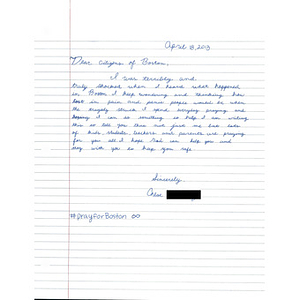 April 18, 2013
Dear Citizens of Boston,
I was terribly and
truly shocked when I heard what happened
in Boston. I keep wondering and thinking how
in pain and panic people would be when
the tragedy struck. I spend everyday praying and
I can do something to help. I am writing
this to tell you that not just me but lots
of kids, students, teachers and parents are praying
for you all. I hope God can help you and
stay with you to keep you safe.
Sincerely,
Chloe
#prayforBoston ∞